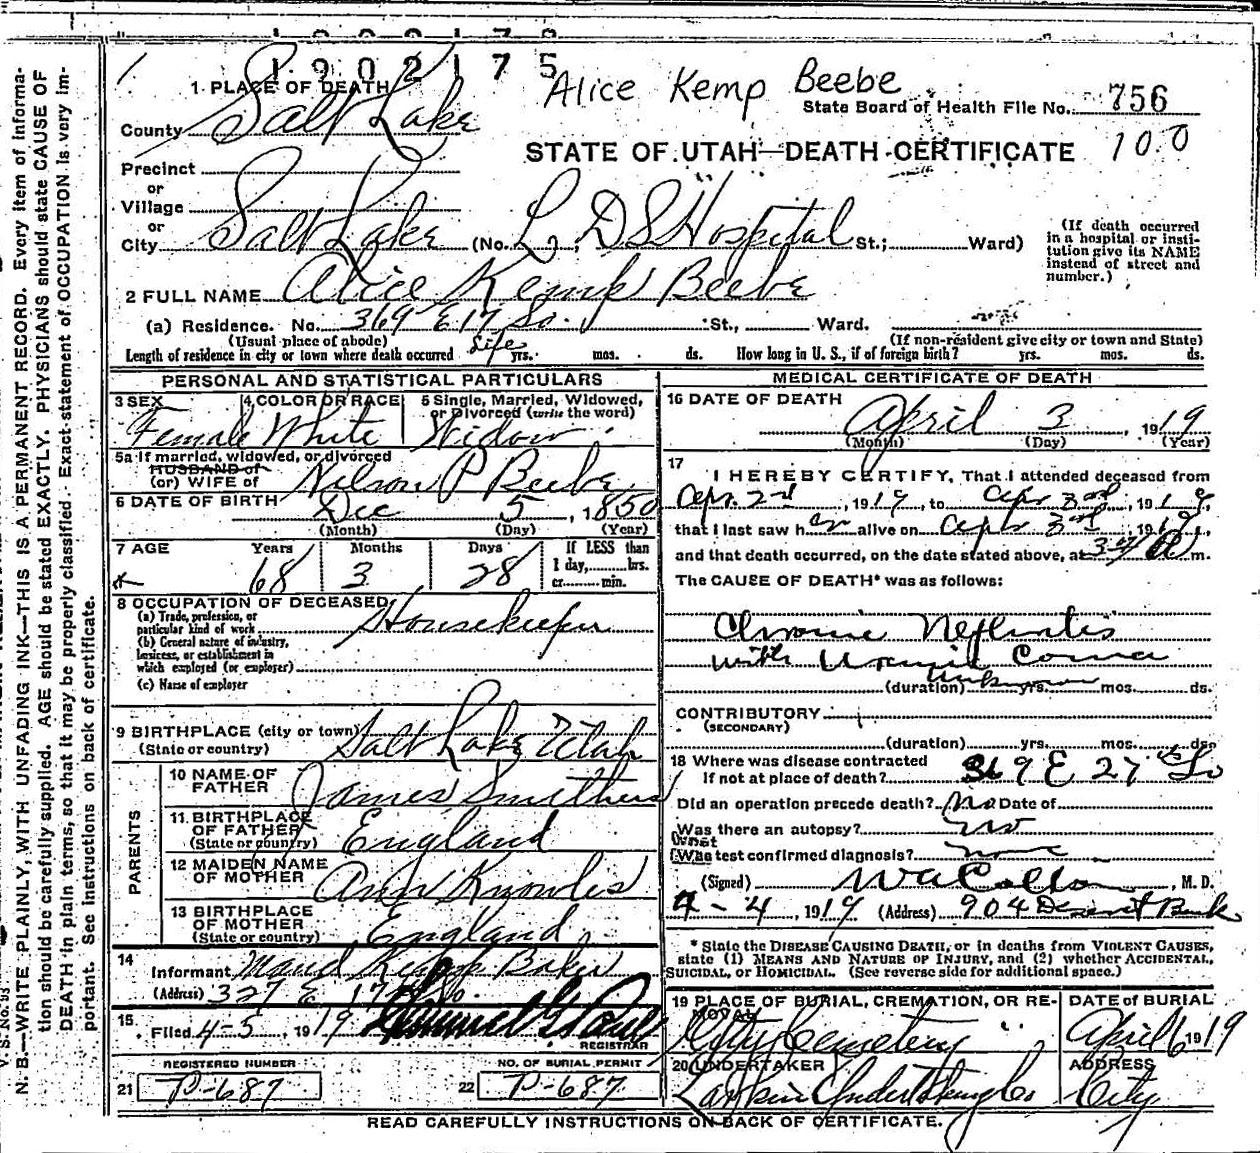 1902175
Alice Kemp Beebe
1 PLACE OF DEATH
State Board of Health File No. 756
County Salt Lake
STATE OF UTAH—DEATH CERTIFICATE 10.0
Precinct
or
Village
or
City Salt Lake (No. L. D S Hospital St.; Ward)
(If death occurred in a hospital or insti-
tution give its NAME
instead of street and
number.)
2 FULL NAME Alice Kemp Beebe
(a) Residence. No. 369 E 17 So. St., Ward.
(Usual place of abode) (If non-resident give city or town and State)
Length of residence in city or town where death occurred Life yrs. mos. ds. How long in U. S., if of foreign birth? yrs. mos. ds.
PERSONAL AND STATISTICAL PARTICULARS
3 SEX 4 COLOR OR RACE 5 Single, Married, Widowed,
or Divorced (write the word)
Female White Widow
5a If married, widowed, or divorced
HUSBAND of
(or) WIFE of Nelson P Beebe
6 DATE OF BIRTH Dec 5, 1850
(Month) (Day) (Year)
7 AGE Years Months Days If LESS than
1 day, hrs.
or min.
68 3 28
8 OCCUPATION OF DECEASED
(a) Trade, profession, or
particular kind of work Housekeeper
(b) General nature of industry,
business, or establishment in
which employed (or employer)
(c) Name of employer
9 BIRTHPLACE (city or town) Salt Lake Utah
(State or country)
PARENTS
10 NAME OF
FATHER James Smithers
11 BIRTHPLACE
OF FATHER England
(State or country)
12 MAIDEN NAME
OF MOTHER Ann Knowles
13 BIRTHPLACE
OF MOTHER England
(State or country)
14
Informant Maud Kemp Baker
(Address) 327 E 17th So.
15
Filed 4-5, 1919
REGISTRAR
REGISTERED NUMBER NO. OF BURIAL PERMIT
21 P-687 22 P-687
MEDICAL CERTIFICATE OF DEATH
16 DATE OF DEATH
April 3, 1919
(Month) (Day) (Year)
17
I HEREBY CERTIFY, That I attended deceased from
Apr. 2nd, 1919, to Apr 3rd, 1919,
that I last saw her alive on Apr 3rd, 1919,
and that death occurred, on the date stated above, at m.
The CAUSE OF DEATH* was as follows:
Chronic Nephritis
with Uraemic Coma
(duration) Unknown yrs. mos. ds.
CONTRIBUTORY
(SECONDARY)
(duration) yrs. mos. ds.
18 Where was disease contracted
if not at place of death? 369 E 27 So
Did an operation precede death? No Date of
Was there an autopsy? No
What
Was test confirmed diagnosis? none
(Signed) , M. D.
4-4, 1919 (Address) 904 Deseret Bank
* State the DISEASE CAUSING DEATH, or in deaths from VIOLENT CAUSES,
state (1) MEANS AND NATURE OF INJURY, and (2) whether ACCIDENTAL,
SUICIDAL, or HOMICIDAL. (See reverse side for additional space.)
19 PLACE OF BURIAL, CREMATION, OR RE-
MOVAL
City Cemetery
DATE OF BURIAL
April 6 1919
20 UNDERTAKER
Larkin Undertaking Co
ADDRESS
City
READ CAREFULLY INSTRUCTIONS ON BACK OF CERTIFICATE.
V. S. No. 93
N. B.—WRITE PLAINLY, WITH UNFADING INK—THIS IS A PERMANENT RECORD. Every item of informa-
tion should be carefully supplied. AGE should be stated EXACTLY. PHYSICIANS should state CAUSE OF
DEATH in plain terms, so that it may be properly classified. Exact statement of OCCUPATION is very im-
portant. See instructions on back of certificate.